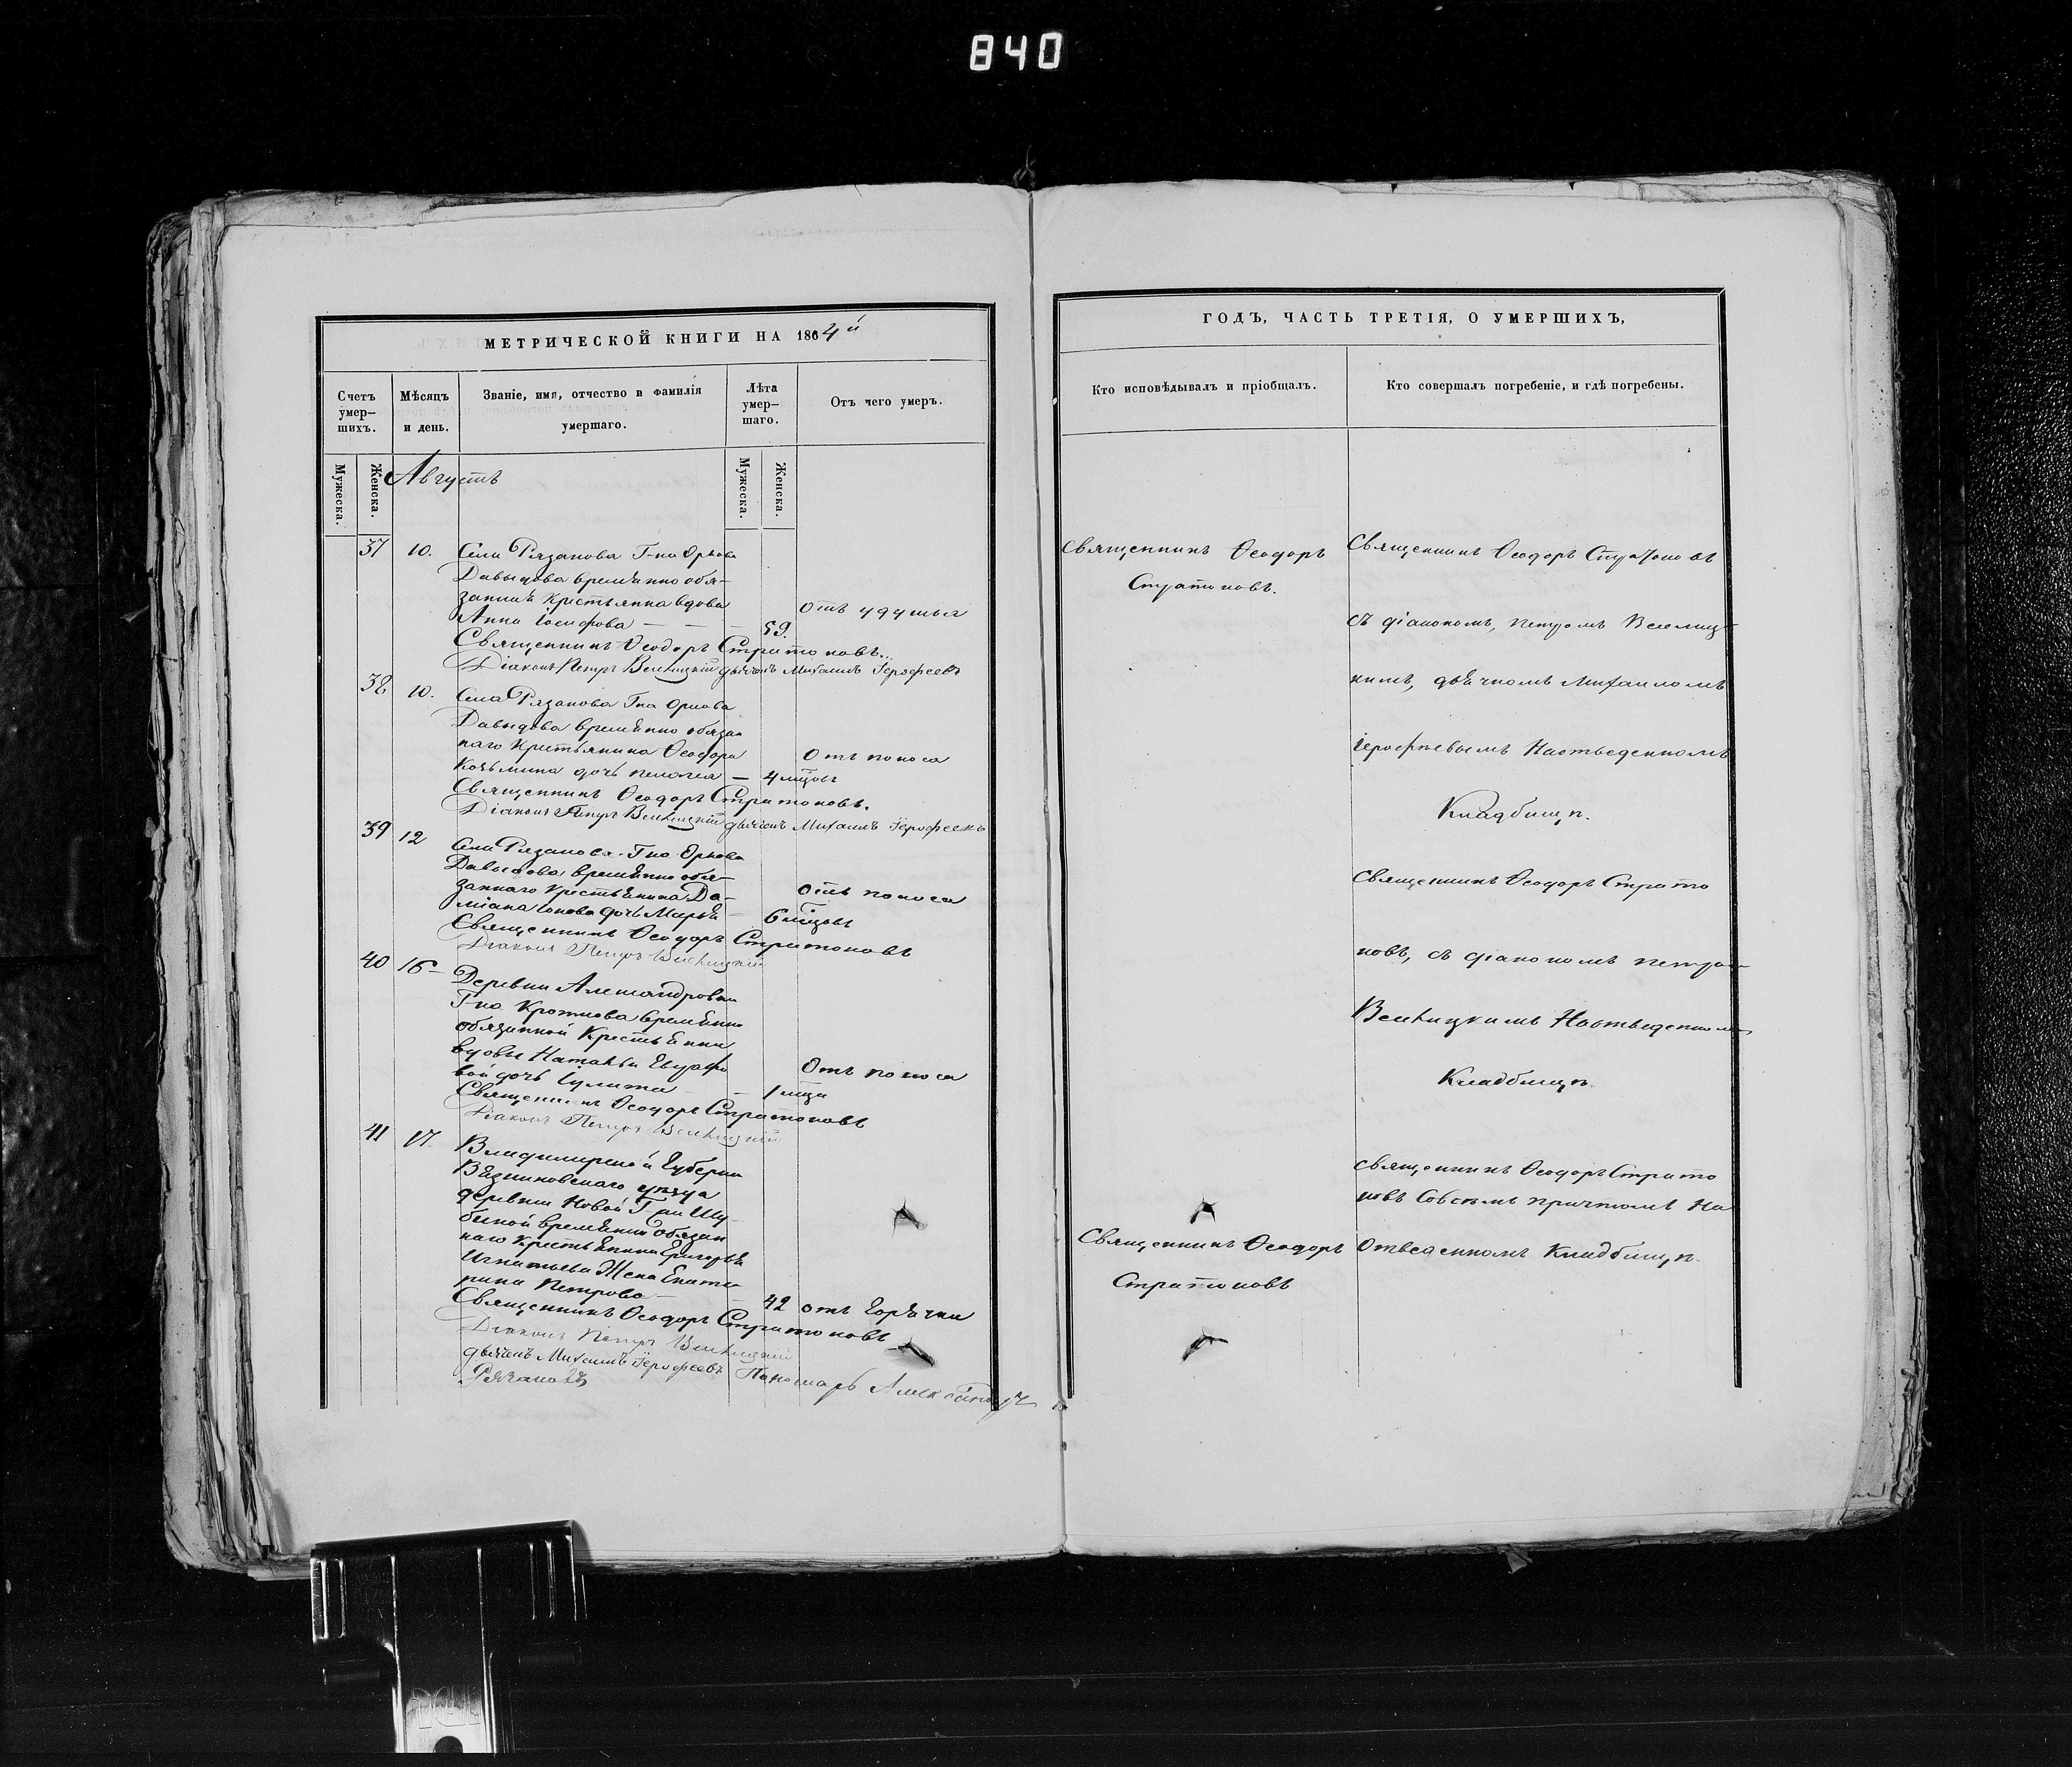 840
МЕТРИЧЕСКОЙ КНИГИ НА 1864й
Счетъ умер—шихъ.
Мѣсяцъ и день.
Званіе, имя, отчество и фамилія умершаго.
Лѣта умер—шаго.
Отъ чего умеръ.
Мужеска.
Женска.
Мужеска.
Женска.
Августъ
37 10. Села Рязанова Г-на Орлова
Давыдова временно обя-
занная крестьянка вдова
Анна Іосифова — — 59. отъ удушья
Священникъ Ѳеодоръ Стратоновъ.
Діаконъ Петръ Велицкій дьячекъ Михаилъ Іерофеевъ
38 10. Села Рязанова Гна Орлова
Давыдова временно обязан
наго крестьянина Ѳеодора
Козьмина дочь Пелагея — 4 мцовъ Отъ поноса
Священникъ Ѳеодоръ Стратоновъ.
Діаконъ Петръ Велицкій дьячекъ Михаилъ Іерофеевъ
39 12 Села Рязанова Гна Орлова
Давыдова временно обя-
заннаго крестьянина Да-
міана Іонова дочь Марья — 6 мцовъ отъ поноса
Священникъ Ѳеодоръ Стратоновъ
Діаконъ Петръ Велицкій
40 16 Деревни Александровки
Г-на Кроткова временно
обязанной крестьянки
вдовы Натальи Евграфо
вой дочь Іулита — 1 мца Отъ поноса
Священникъ Ѳеодоръ Стратоновъ
Діаконъ Петръ Велицкій
41 17. Владимирской Губерніи
Вязниковскаго уѣзда
деревни Новой Г-жи
временно обязан
наго крестьянина Григорья
Игнатьева Жена Екате
рина Петрова — 42 отъ горячки
Священникъ Ѳеодоръ Стратоновъ
Діаконъ Петръ Велицкій
дьячекъ Михаилъ Іерофеевъ Пономарь Александръ
Рязановъ
ГОДЪ, ЧАСТЬ ТРЕТІЯ, О УМЕРШИХЪ,
Кто исповѣдывалъ и пріобщалъ.
Кто совершалъ погребеніе, и гдѣ погребены.
Священникъ Ѳеодоръ
Стратоновъ.
Священникъ Ѳеодоръ Стратоновъ
съ діакономъ, Петромъ Велиц
кимъ, дьячкомъ Михаиломъ
Іерофѣевымъ На отведенномъ
Кладбищѣ.
Священникъ Ѳеодоръ Страто
новъ, съ діакономъ Петромъ
Велицкимъ На отведенномъ
Кладбищѣ.
Священникъ Ѳеодоръ
Стратоновъ
священникъ Ѳеодоръ Страто
новъ Совсѣмъ причтомъ На
Отведенномъ Кладбищѣ.